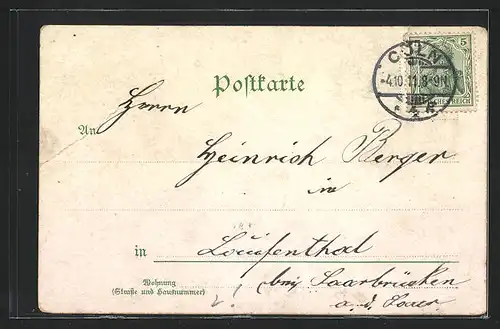 5
CÖLN
4.10.11.8-9N
Postkarte
Herrn
An
Heinrich Berger
in
in Louisenthal
bei Saarbrücken
a. d. Saar
Wohnung
(Straße und Hausnummer)